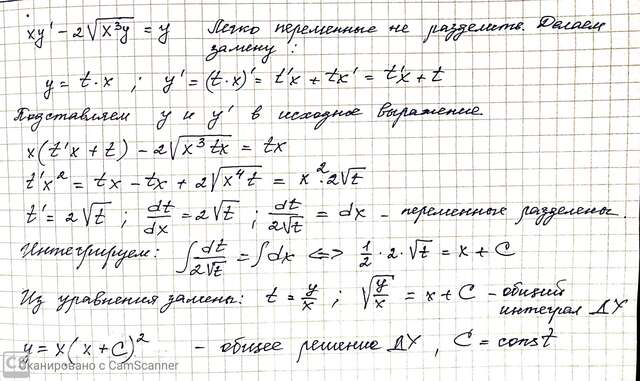 xy' - 2√(x³y) = y Легко переменные не разделить. Делаем
замену:
y = t·x ; y' = (t·x)' = t'x + tx' = t'x + t
Подставляем y и y' в исходное выражение.
x(t'x + t) - 2√(x³tx) = tx
t'x² = tx - tx + 2√(x⁴t) = x²·2√t
t' = 2√t ; dt/dx = 2√t ; dt/2√t = dx - переменные разделены.
Интегрируем: ∫dt/2√t = ∫dx <=> 1/2·2·√t = x + C
Из уравнения замены: t = y/x ; √(y/x) = x + C - общий
интеграл ДУ
y = x(x + C)² - общее решение ДУ, C = const
CS Сканировано с CamScanner